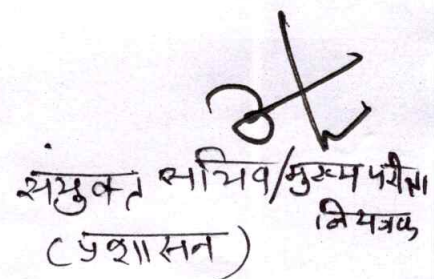 संयुक्त सचिव/मुख्य परीक्षा
नियंत्रक
(प्रशासन)